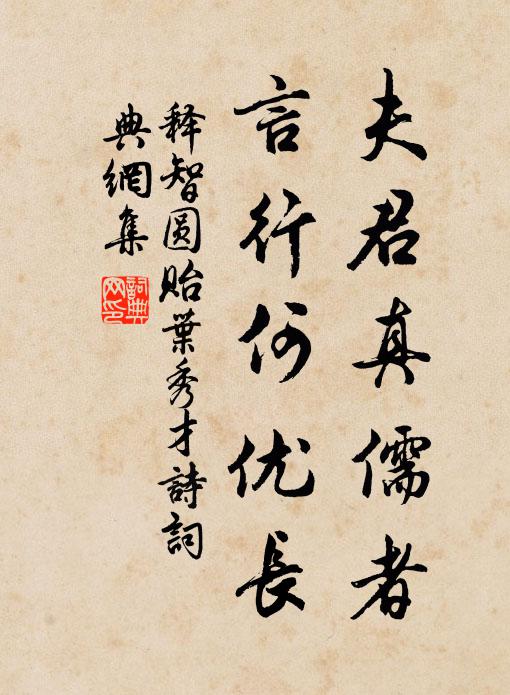 夫君真儒者
言行何优長
释智圆贻葉秀才詩詞
典網集
詞典网印